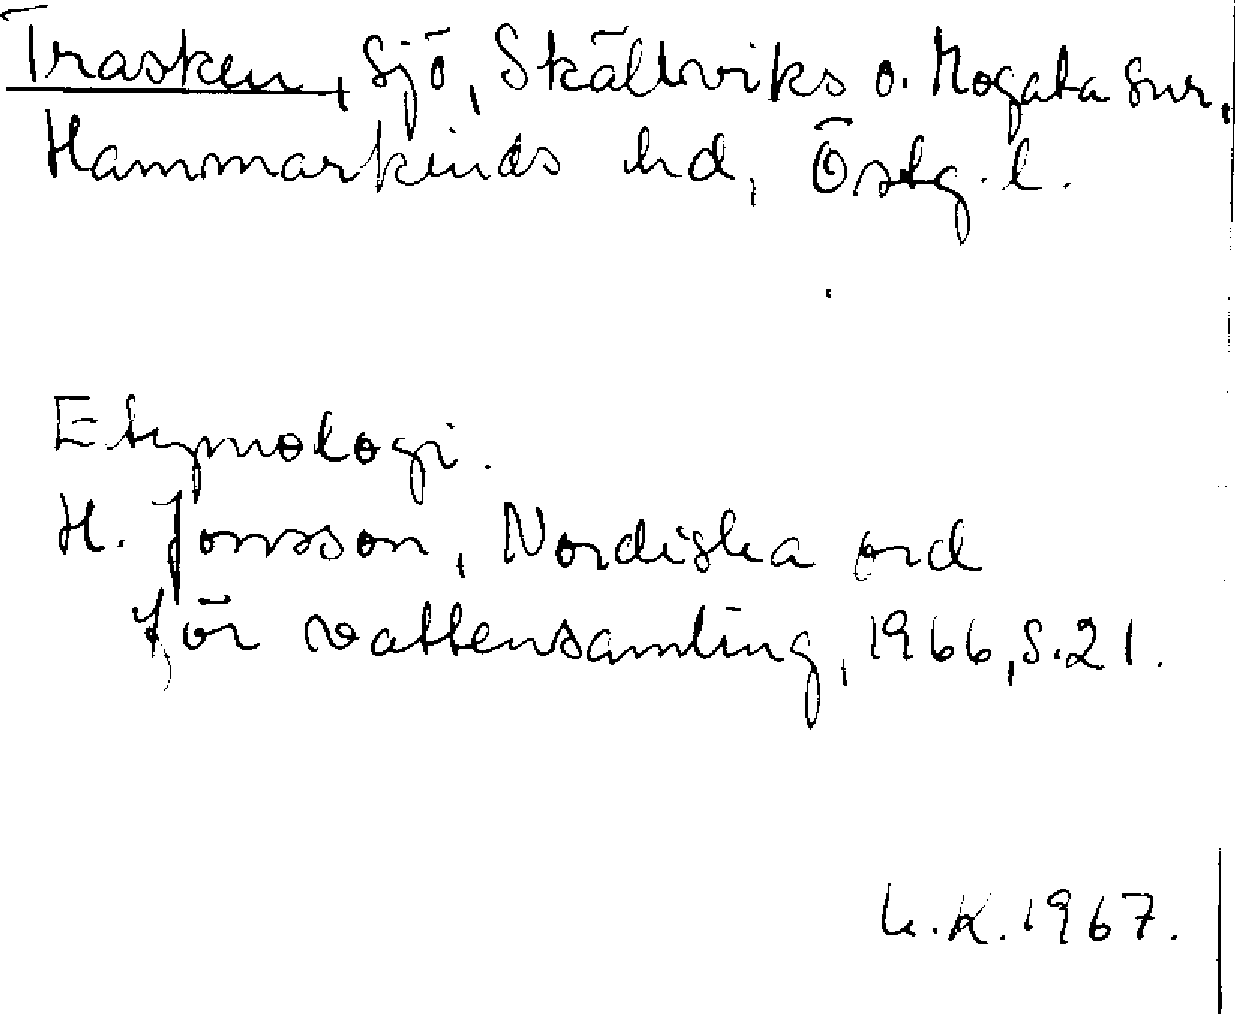 Trasken, Sjö, Skällviks o. Mogata snr,
Hammarkinds hd, Östg. l.
Etymologi.
H. Jonsson, Nordiska ord
för vattensamling, 1966, s. 21.
K. 1967.